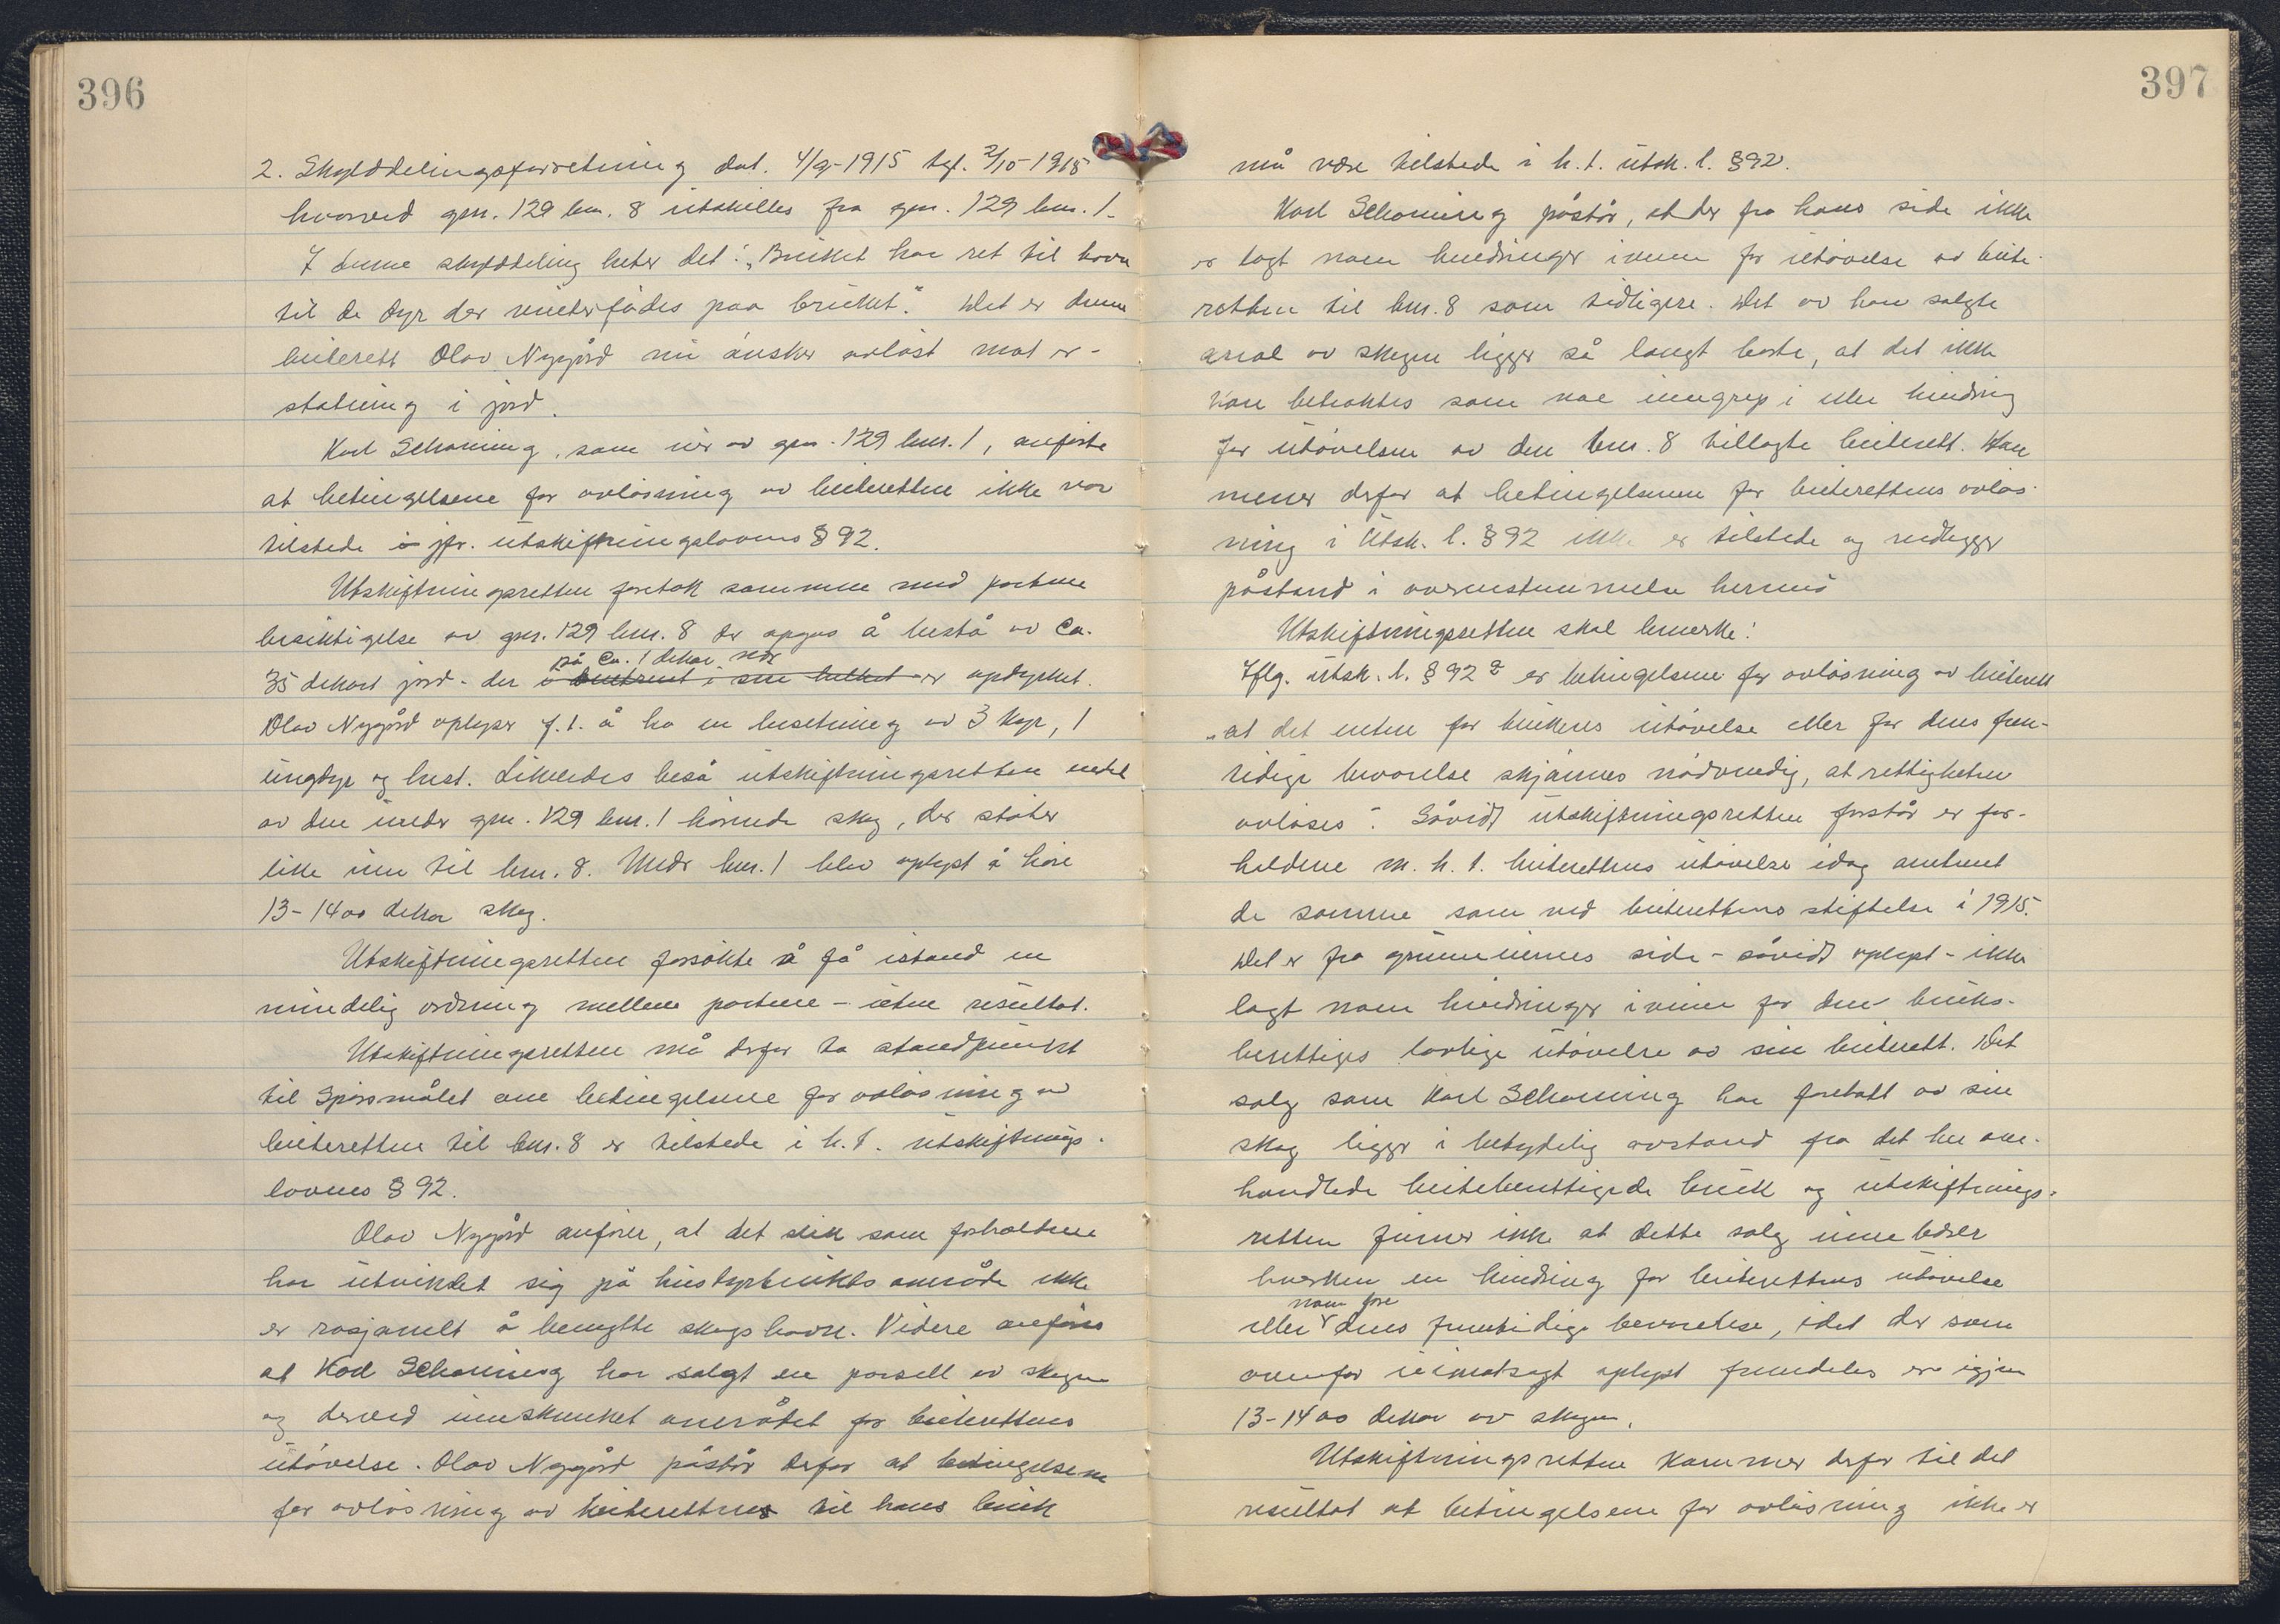 396
2. Skylddelingsforretning dat. 4/9-1915 tgl. 2/10-1915
hvorved gnr. 129 bnr. 8 utskilles fra gnr. 129 bnr. 1.
I denne skylddeling heter det: „Bruket har ret til havn
til de dyr der vinterfødes paa bruket." Det er denne
beiterett Olav Nygård nu ønsker avløst mot er-
statning i jord.
Karl Schoning, som eier av gnr. 129 bnr. 1, anførte
at betingelsene for avløsning av beiteretten ikke var
tilstede i jfr. utskiftningslovens § 92.
Utskiftningsretten foretok sammen med partene
besiktigelse av gnr. 129 bnr. 8 der opgives å bestå av ca.
på ca. 1 dekar nær
35 dekart jord - der i omtrent i sin helhet er opdyrket.
Olav Nygård oplyser f.t. å ha en besetning av 3 kyr, 1
ungdyr og hest. Likeledes beså utskiftningsretten endel
av den under gnr. 129 bnr. 1 hørende skog, der støter
like inn til bnr. 8. Under bnr. 1 blev oplyst å høre
13-1400 dekar skog.
Utskiftningsretten forsøkte å få istand en
mindelig ordning mellem partene - uten resultat.
Utskiftningsretten må derfor ta standpunkt
til Spørsmålet om betingelsene for avløsning av
beiteretten til bnr. 8 er tilstede i h.t. utskiftnings-
lovens § 92.
Olav Nygård anfører, at det slik som forholdene
har utviklet sig på husdyrbrukets område ikke
er rasjonelt å benytte skogshavn. Videre anføres
at Karl Schoning har solgt en parsell av skogen
og derved innskrenket området for beiterettens
utøvelse. Olav Nygård påstår derfor at betingelsene
for avløsning av beiterettens til hans bruk
397
må være tilstede i h.t. utsk. l. § 92.
Karl Schoning påstår, at der fra hans side ikke
er lagt noen hindringer iveien for utøvelse av beite-
retten til bnr. 8 som tidligere. Det av ham solgte
areal av skogen ligger så langt borte, at det ikke
kan betraktes som noe inngrep i eller hindring
for utøvelsen av den bnr. 8 tillagte beiterett. Han
mener derfor at betingelsene for beiterettens avløs-
ning i Utsk. l. § 92 ikke er tilstede og nedlegger
påstand i overenstemmelse hermed
Utskiftningsretten skal bemerke:
Iflg. utsk. l. § 92 2 er betingelsene for avløsning av beiterett
„at det enten for brukens utøvelse eller for dens frem-
tidige bevarelse skjønnes nødvendig, at rettigheten
avløses". Såvidt utskiftningsretten forstår er for-
holdene m. h. t. beiterettens utøvelse idag omtrent
de samme som ved beiterettens stiftelse i 1915.
Det er fra grunneiernes side - såvidt oplyst - ikke
lagt noen hindringer iveien for den bruks-
berettiges lovlige utøvelse av sin beiterett. Det
salg som Karl Schoning har foretatt av sin
skog ligger i betydelig avstand fra det her om-
handlede beiteberettigede bruk og utskiftnings-
retten finner ikke at dette salg innebærer
hverken en hindring for beiterettens utøvelse
noen fare
eller dens fremtidige bevarelse, idet der som
ovenfor uimotsagt oplyst fremdeles er igjen
13-1400 dekar av skogen.
Utskiftningsretten kommer derfor til det
resultat at betingelsene for avløsning ikke er